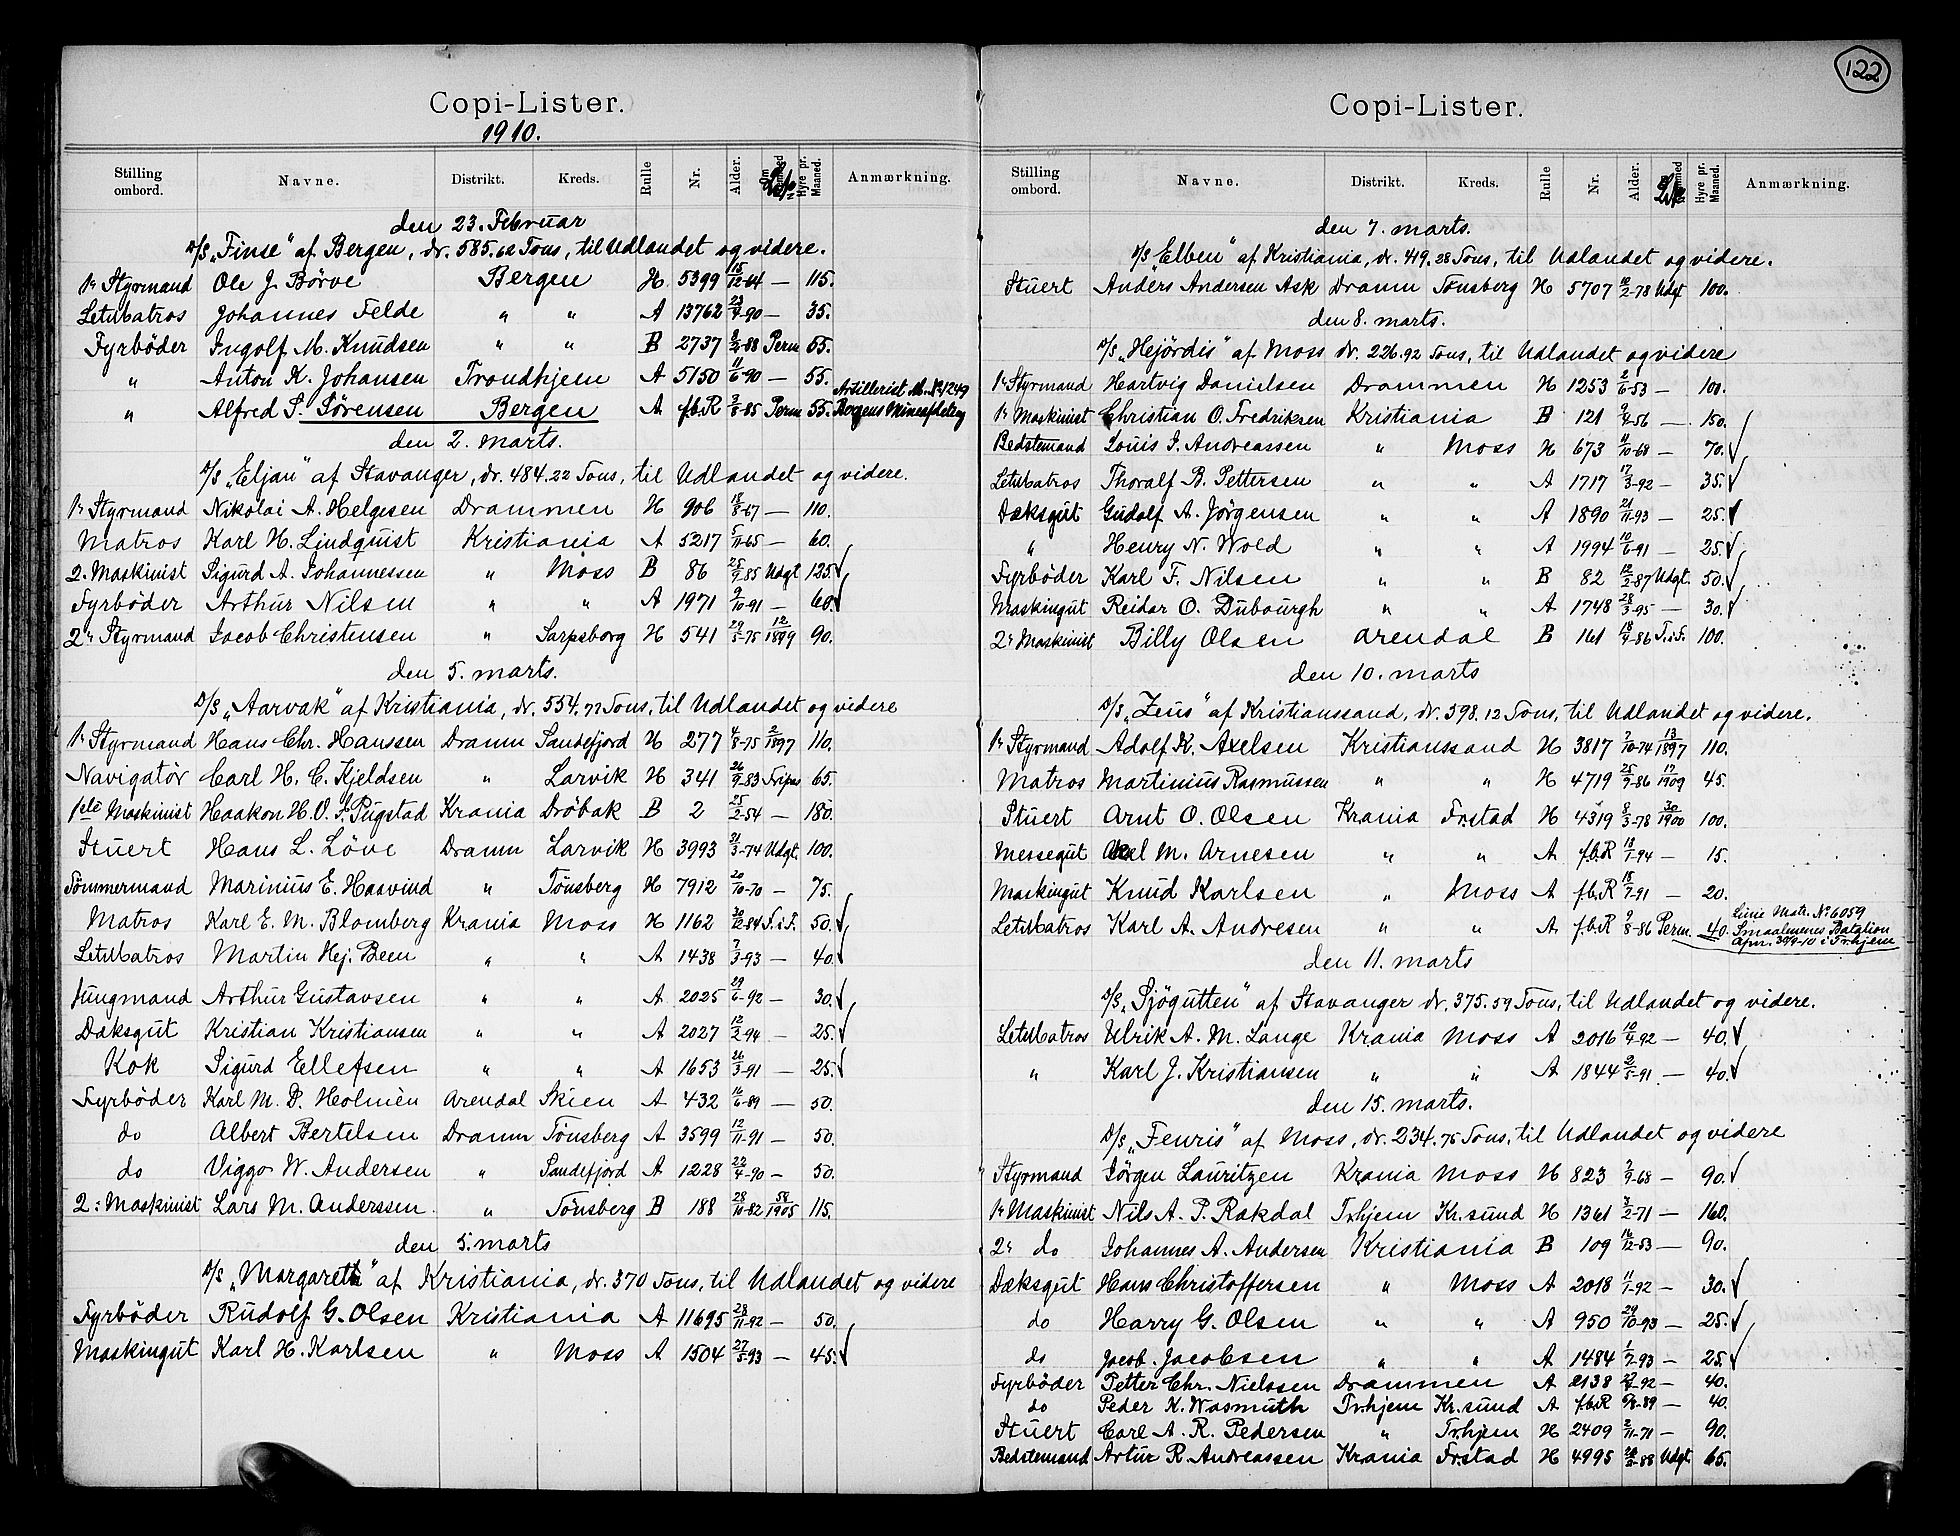 122
Copi-Lister.
1910.
Stilling ombord. Navne. Distrikt. Kreds. Rulle Nr. Alder. Hyre pr. Maaned. Anmærkning.
den 23. Februar
D/S „Finse" af Bergen, dr. 585.62 Tons, til Udlandet og videre.
1ste Styrmand Ole J. Börve Bergen H 5399 15/12-64 — 115.
LetMatros Johannes Felde " " A 13762 23/9-90 — 35.
Fyrböder Ingolf M. Knudsen " " B 2737 2/2-88 Perm 55.
" Anton K. Johansen Trondhjem A 5150 11/6-90 — 55.
" Alfred S. Sörensen Bergen A fb.R 3/8-85 Perm 55. Artillerist M. No 1249 Bergens Mineafdeling
den 2. marts.
D/S „Eljan" af Stavanger, dr. 484.22 Tons, til Udlandet og videre.
1ste Styrmand Nikolai A. Helgesen Drammen H 906 18/8-67 — 110.
Matros Karl H. Lindquist Kristiania A 5217 5/11-65 — 60.
2. Maskinist Sigurd A. Johannessen " Moss B 86 25/9-85 Udgt 125.
Fyrböder Arthur Nilsen " " A 1971 9/10-91 — 60.
2n Styrmand Jacob Christensen " Sarpsborg H 541 29/5-75 12/1899 90.
den 5. marts.
D/S „Aarvak" af Kristiania, dr. 554.77 Tons, til Udlandet og videre
1ste Styrmand Hans Chr. Hanssen Dramn Sandefjord H 277 4/8-75 2/1897 110.
Navigatör Carl H. C. Kjeldsen " Larvik H 341 26/9-83 Fripas 65.
1ste Maskinist Haakon H. O. S. Pugstad Krania Dröbak B 2 25/2-54 — 180.
Stuert Hans L. Löve Dramn Larvik H 3993 31/3-74 Udgt. 100.
Tömmermand Marinius E. Haavind " Tönsberg H 7912 20/10-70 — 75.
Matros Karl E. M. Blomberg Krania Moss H 1162 30/12-84 T.i.T. 50.
LetMatros Martin Hej. Been " " A 1438 7/3-93 — 40.
Jungmand Arthur Gustavsen " " A 2025 29/6-92 — 30.
Dæksgut Kristian Kristiansen " " A 2027 12/3-94 — 25.
Kok Sigurd Ellefsen " " A 1653 26/3-91 — 25.
Fyrböder Karl M. D. Holmèn Arendal Skien A 432 16/6-89 — 50.
do Albert Bertelsen Dramn Tönsberg A 3599 12/11-91 — 50.
do Viggo W. Andersen " Sandefjord A 1228 22/4-90 — 50.
2: Maskinist Lars M. Anderssen " Tönsberg B 188 28/10-82 58/1905 115.
den 5. marts
D/S „Margareth" af Kristiania, dr. 370 Tons, til Udlandet og videre
Fyrböder Rudolf G. Olsen Kristiania A 11695 28/11-92 — 50.
Maskingut Karl H. Karlsen " Moss A 1504 27/5-93 — 45.
Copi-Lister.
Stilling ombord. Navne. Distrikt. Kreds. Rulle Nr. Alder. Hyre pr. Maaned. Anmærkning.
den 7. marts.
D/S „Elben" af Kristiania, dr. 419.28 Tons, til Udlandet og videre.
Stuert Anders Andersen Ask Dramn Tönsberg H 5707 12/2-78 Udgt 100.
den 8. marts.
D/S „Hejördis" af Moss dr. 226.92 Tons, til Udlandet og videre
1ste Styrmand Hartvig Danielsen Drammen H 1253 2/6-53 — 100.
1ste Maskinist Christian O. Fredriksen Kristiania B 121 9/4-56 — 150.
Bedstemand Louis J. Andreassen " Moss H 673 11/10-68 — 70.
LetMatros Thoralf B. Pettersen " " A 1717 17/3-92 — 35.
Dæksgut Gudolf A. Jörgensen " " A 1890 21/11-93 — 25.
" Henry N. Wold " " A 1994 10/6-91 — 25.
Fyrböder Karl F. Nilsen " " B 82 12/2-87 Udgt. 50.
Maskingut Reidar O. Dubourgh " " A 1748 28/3-95 — 30.
2n Maskinist Billy Olsen Arendal B 161 18/9-86 T.i.T. 100.
den 10. marts
D/S „Zeus" af Kristianssand, dr. 398.12 Tons, til Udlandet og videre.
1ste Styrmand Adolf K. Axelsen Kristianssand H 3817 7/10-74 13/1897 110.
Matros Martinius Rasmussen " " H 4719 25/9-86 17/1909 45.
Stuert Arnt O. Olsen Krania Frstad H 4319 8/3-78 30/1900 100.
Messegut Axel M. Arnesen " " A f.b.R 13/1-94 — 15.
Maskingut Knud Karlsen " Moss A f.b.R 15/7-91 — 20.
LetMatros Karl A. Andresen " " A f.b.R 9/8-86 Perm. 40. Linie Matr. No 6059 Smaalenenes Bataljon Apr. 30/9-10 i Tr.hjem
den 11. marts
D/S „Sjögutten" af Stavanger dr. 375.59 Tons, til Udlandet og videre.
LetMatros Ulrik A. M. Lange Krania Moss A 2016 10/4-92 — 40.
" Karl J. Kristiansen " " A 1844 2/5-91 — 40.
den 15. marts.
D/S „Fenris" af Moss, dr. 234.75 Tons, til Udlandet og videre
Styrmand Jörgen Lauritzen Krania Moss H 823 7/9-68 — 90.
1ste Maskinist Nils A. P. Rakdal Tr.hjem Kr.sund H 1361 3/2-71 — 160.
2n do Johannes A. Andersen Kristiania B 109 16/12-53 — 90.
Dæksgut Hans Christoffersen " Moss A 2018 11/1-92 — 30.
do Harry G. Olsen " " A 950 29/10-93 — 25.
do Jacob Jacobsen " " A 1484 1/7-93 — 25.
Fyrböder Petter Chr. Nielssen Drammen A 2138 -92 — 40.
do Peder K. Wasmuth Tr.hjem Kr.sund A f.b.R -89 — 40.
Stuert Carl A. R. Pedersen " Tr.hjem H 2409 2/11-71 — 90.
Bedstemand Artur R. Andreassen Krania Frstad H 4995 -88 Udgt 65.